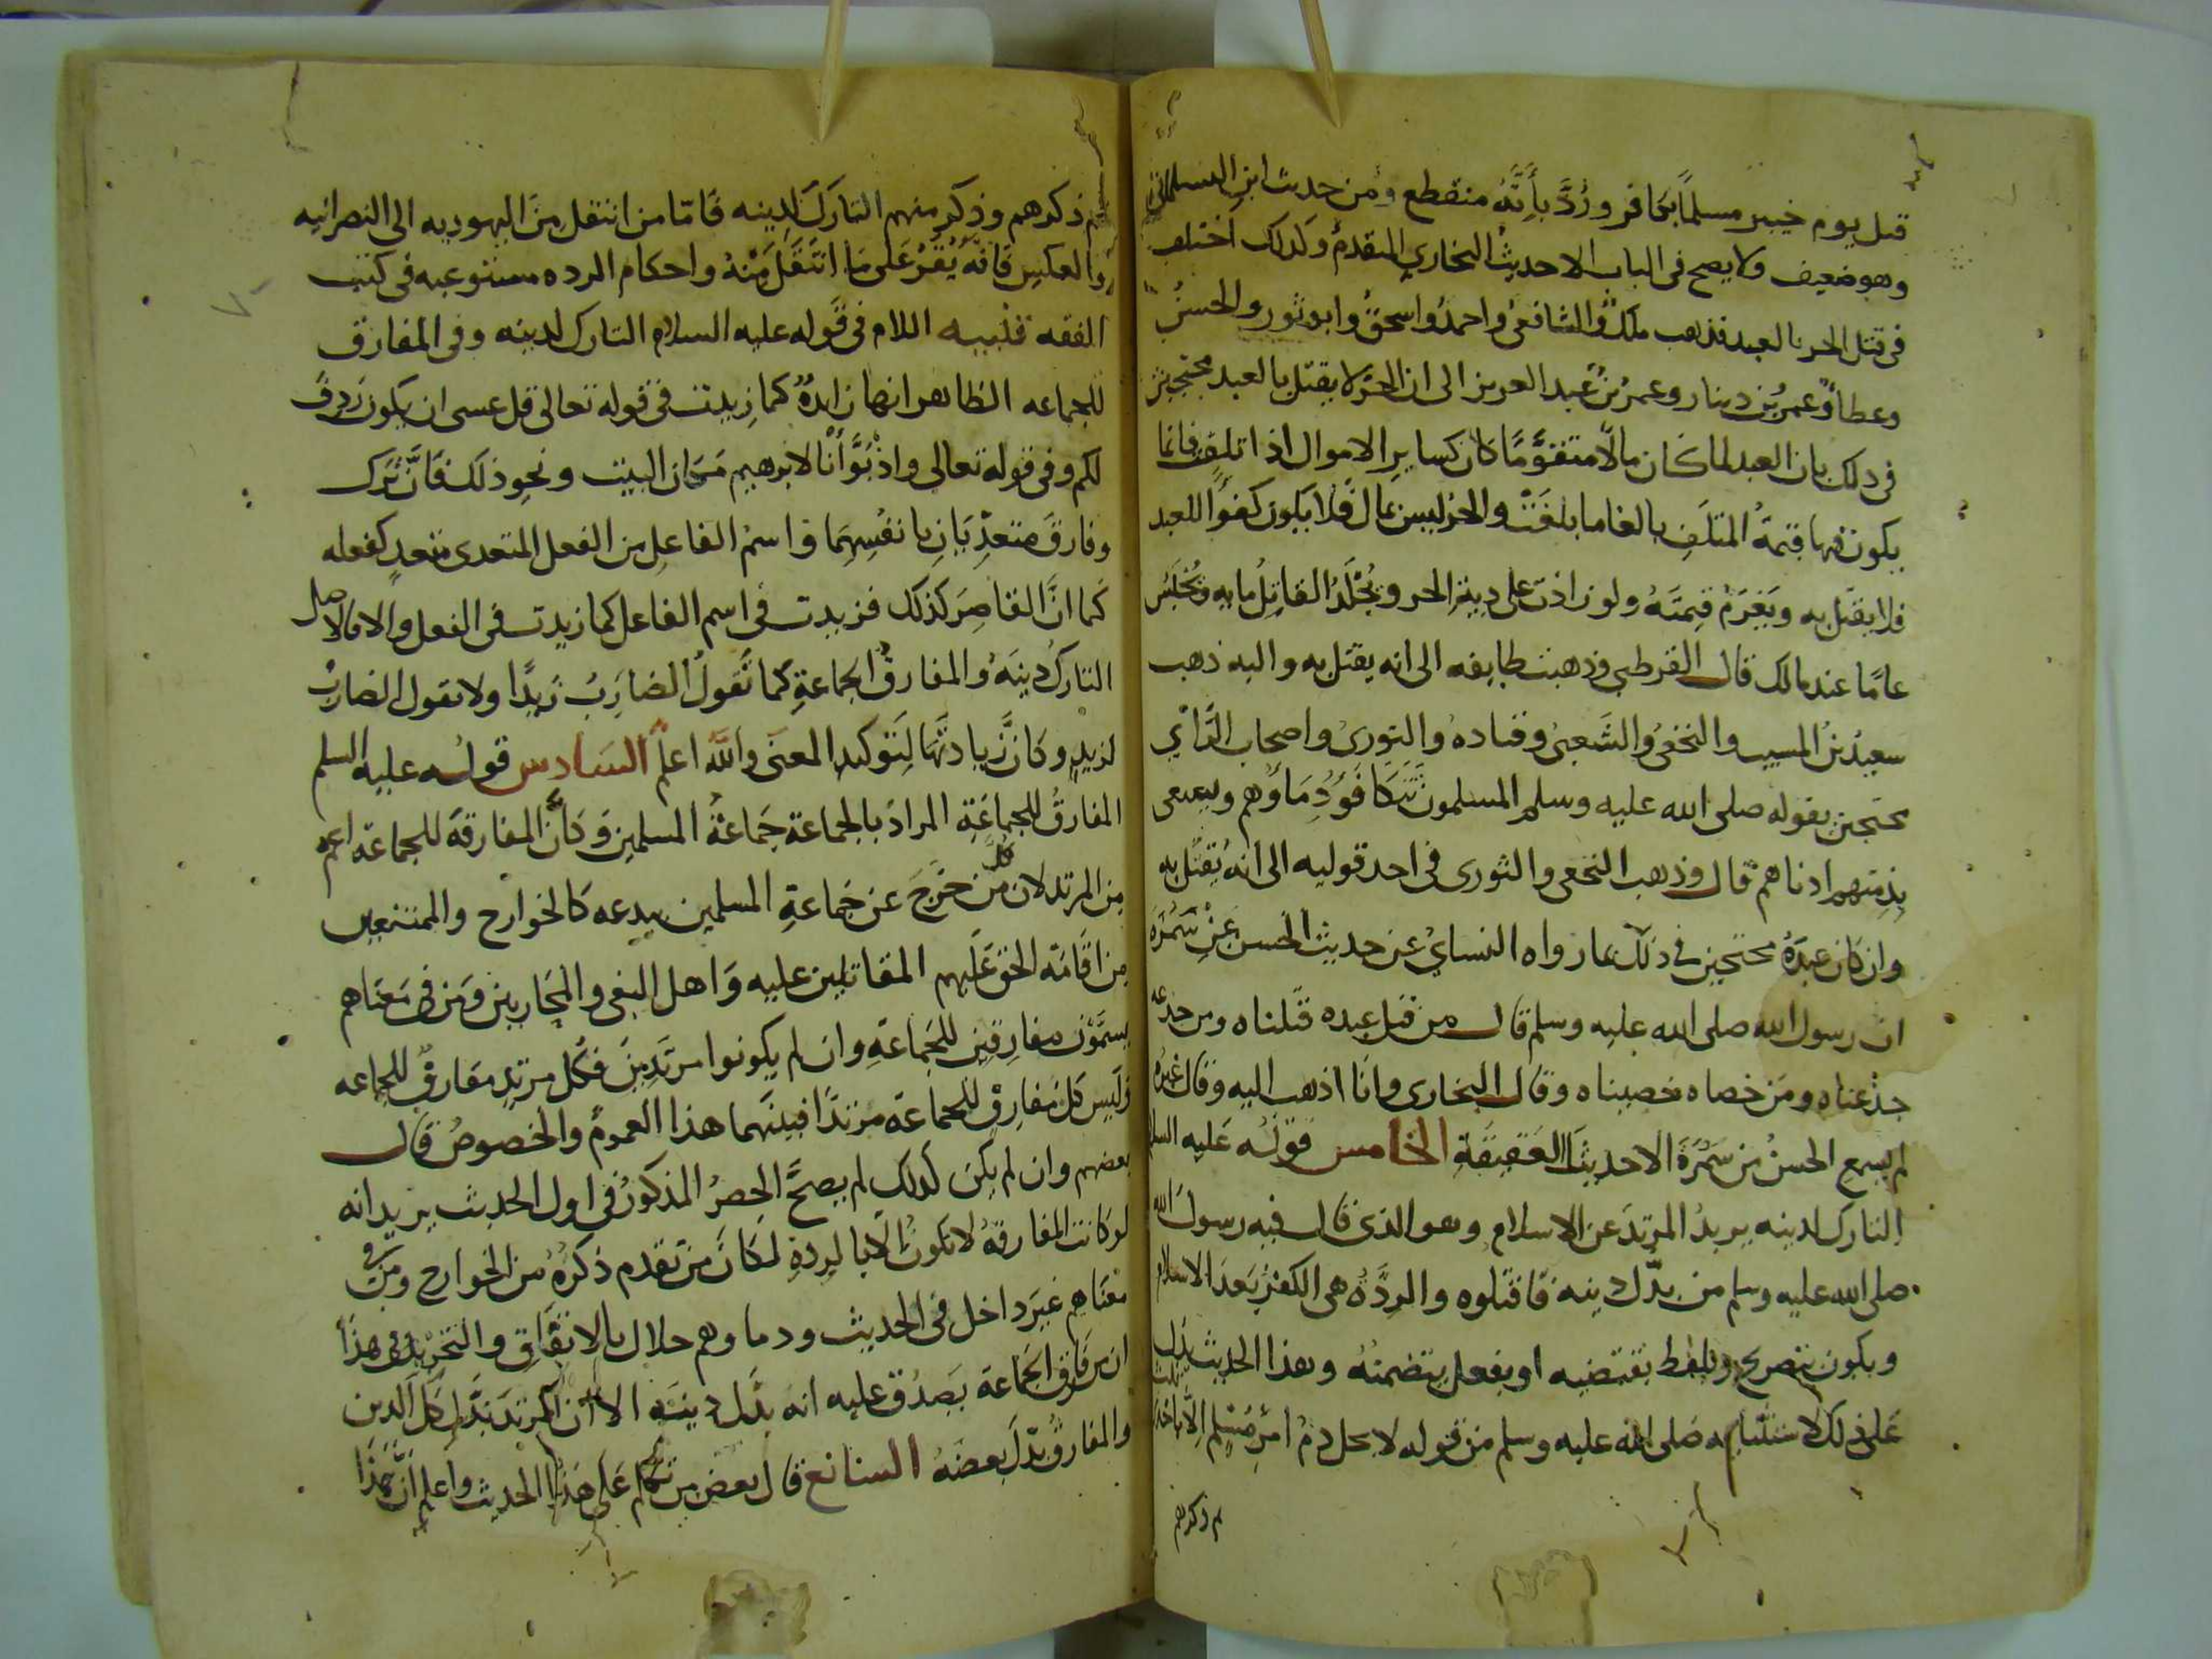 قتل يوم خيبر مسلماً بكافر ورُدَّ بأنَّهُ منقطع ومن حديث ابن البيلماني
وهو ضعيف ولا يصح في الباب الا حديثُ البخاري المتقدم وكذلك اختلف
في قتل الحر بالعبد فذهب ملك والشافعي واحمدُ واسحقُ وابو ثور والحسنُ
وعطاءٌ وعمرُ بن دينار وعمرُ بنُ عبد العزيز الى ان الحرّ لا يقتل بالعبد محتجين
في ذلك بان العبد لما كان مالاً متقوَّمًا كان كسايرِ الاموال اذا تلفت فانما
يكون فيها قيمةُ المتلَفِ بالغا ما بلغَتْ والحر ليس بمال فلا يكون كفوًا للعبد
فلا يقتل به ويَغرَمُ قيمتَهُ ولو زادت على ديةِ الحر ويُجْلَدُ القاتِلُ مايه ويُحْبَسُ
عامًا عند مالك قال القرطبي وذهبت طايفه الى انه يقتل به واليه ذهب
سعيدُ بنُ المسيب والنخعيُ والشَعبيُ وقتاده والثوريُ واصحاب الرَّأي
محتجين بقوله صلى الله عليه وسلم المسلمون تتكافَؤُ دِمَاؤُهم ويسعى
بذِمتهم ادناهم قال وذهب النخعي والثوري في احد قوليه الى انهُ يقتل به
وان كان عبدَهُ محتجين في ذلك بما رواه النسايُ عن حديث الحسن عن سَمُرَة
ان رسول الله صلى الله عليه وسلم قال من قتل عبده قتلناه ومن جدعه
جدعناه ومن خصاه خصيناه وقال البخاري وانا اذهب اليه وقال غيرُه
لم يسمع الحسنُ من سَمُرَةَ الا حديثَ العَقِيقَةِ الخامس قولُه عليه السلم
التارك لدينه يريدُ المرتدَ عن الاسلام وهو الذي قال فيه رسول الله
صلى الله عليه وسلم من بدّل دينه فاقتلوه والرِدَّةُ هي الكفرُ بَعدَ الاسلام
ويكون بتصريح وبلفظ يقتضيه او بفعل يتضمنُهُ وهذا الحديث يدل
على ذلك لاستثنايه صلى الله عليه وسلم من قوله لا يحل دمُ امرئٍ مُسْلمٍ الا باحدى ثلث
ثم ذكرهم
ثم ذكرهم وذكر منهم التاركَ لدينه فامّا من انتقل من اليهوديه الى النصرانيه
او العكس فانه يُقَرُ على ما انتَقَلَ مِنْهُ واحكام الرده مستوعبه في كتب
الفقه تنبيه اللام في قوله عليه السلام التارك لدينه وفي المفارق
للجماعه الظاهر انها زايدةٌ كما زيدت في قوله تعالى قل عسى ان يكون رَدِفَ
لكم وفي قوله تعالى واذ بَوَّأنا لابرهيم مَكان البيت ونحوِ ذلك فانَّ ترك
وفارقَ متعدِّيَانِ بانفُسِهِمَا واسمُ الفاعِلِ من الفعل المتعدى متعدٍ كفعله
كما انَّ القاصِرَ كذلك فزيدت في اسم الفاعل كما زيدت في الفعل والا فالاصل
التاركُ دينَهُ والمفارقُ الجماعةِ كما تقولُ الضارِبُ زيدًا ولا تقول الضارِبُ
لزيدٍ وكانَّ زيادتَهَا لِتَوكيدِ المعنى والله اعلمُ السَادس قولُه عليه السلم
المفارقُ للجماعَةِ المرادُ بالجماعة جَماعةُ المسلمين وكأنَّ المفارقة للجماعة اعم
مِن المرتد لان كلَّ من خرَجَ عن جَماعةِ المسلمين ببدعه كالخوارج والممتنعين
من اقامَة الحق عَلَيهم المقاتلين عليه وَاهل البغي والمحَاربين ومَن في مَعنَاهم
يسمَّوْن مفارِقين للجَماعَةِ وان لم يكونوا مرتَدين فكل مرتدٍ مفارقٌ للجماعه
وليس كلُ مفارِقٍ للجماعَة مرتدًا فبينَهما هذا العمومُ والخصوصُ قال
بعضهم وان لم يكن كذلك لم يصحَّ الحصرُ المذكورُ في اول الحديث يريد انه
لو كانت المفارقةُ لا تكونُ الا بالرِدةِ لكانَ مَن تقدم ذكرُهُ من الخوارج ومن في
معنَاهم غيرَ داخل في الحديث ودماوهم حلال بالاتفَاقِ والتحريرُ في هذا
ان من فَارقَ الجَماعَةَ يَصدُق عليه انه بدَّل دينَه الا ان المرتدَ بَدَّل كل الدين
والمفارقُ بدّلَ بعضَهُ السابع قال بعض من تكلم عَلى هذا الحديث واعلم انَّ هَذَا